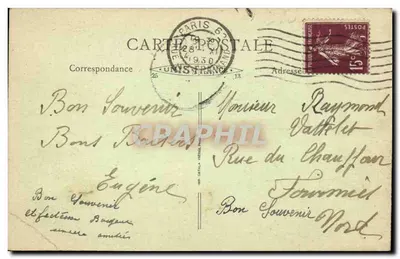 CARTE POSTALE
Correspondance
Adresse
PARIS
1930
POSTES
15c
Bon Souvenir
Bons Baisers
Eugène
Bon Souvenir
et
amitiés
Monsieur Raymond
Rue du Chauffour
Fourmies
Nord
Bon Souvenir
CPAPHIL.COM